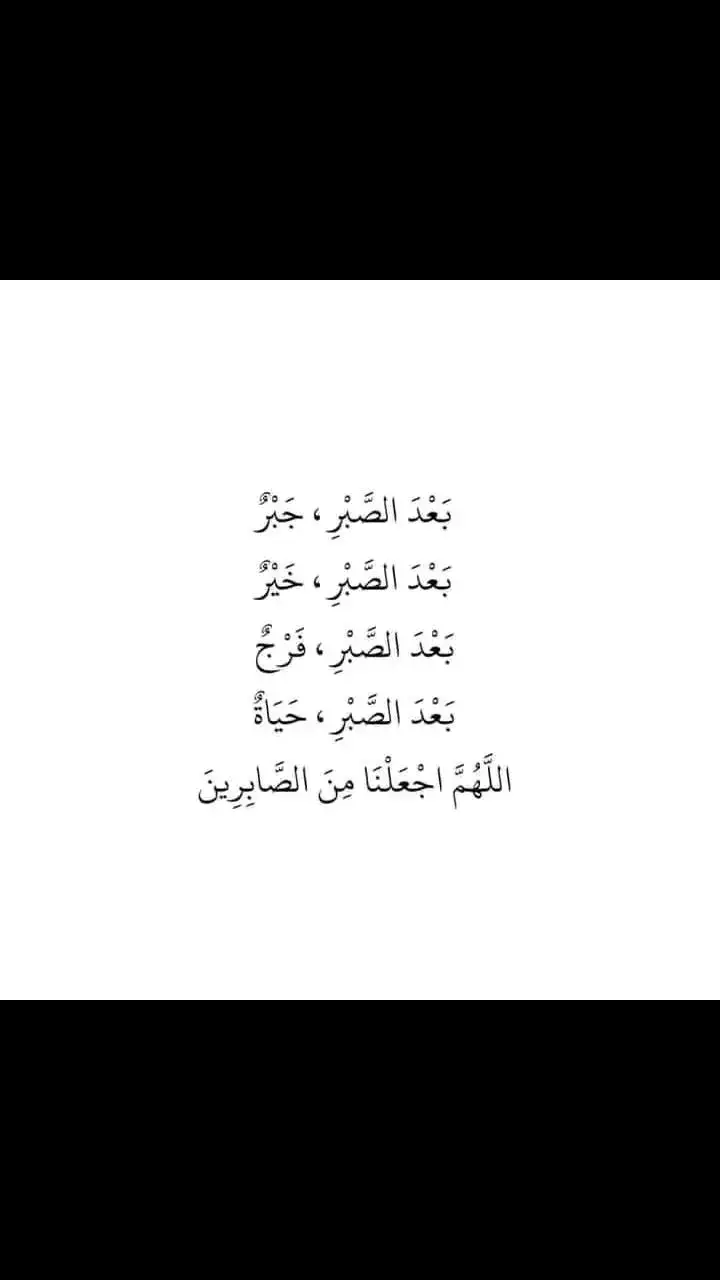 بَعْدَ الصَّبْرِ ، جَبْرٌ
بَعْدَ الصَّبْرِ ، خَيْرٌ
بَعْدَ الصَّبْرِ ، فَرْجٌ
بَعْدَ الصَّبْرِ ، حَيَاةٌ
اللَّهُمَّ اجْعَلْنَا مِنَ الصَّابِرِينَ